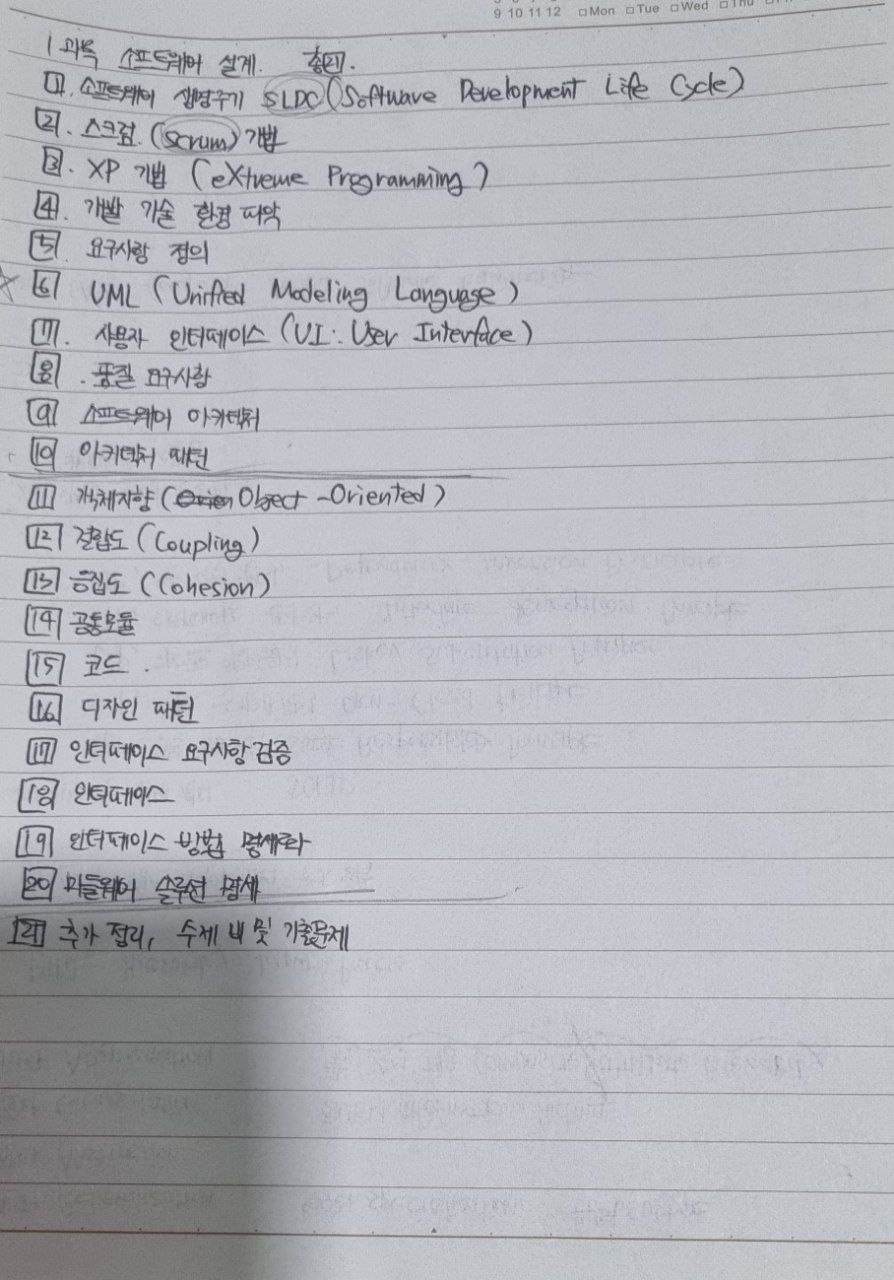 9 10 11 12 □Mon □Tue □Wed □Thu
1과목 소프트웨어 설계. 총정리.
1. 소프트웨어 생명주기 SLDC (Software Development Life Cycle)
2. 스크럼 (scrum) 기법
3. XP 기법 (eXtreme Programming)
4. 개발 기술 환경 파악
5. 요구사항 정의
6 UML (Unified Modeling Language)
7. 사용자 인터페이스 (UI: User Interface)
8. 품질 요구사항
9 소프트웨어 아키텍처
10 아키텍처 패턴
11 객체지향 (Object-Oriented)
12 결합도 (Coupling)
13 응집도 (Cohesion)
14 공통모듈
15 코드.
16 디자인 패턴
17 인터페이스 요구사항 검증
18 인터페이스
19 인터페이스 방법 명세화
20 미들웨어 솔루션 명세
21 추가 정리, 및 기출문제